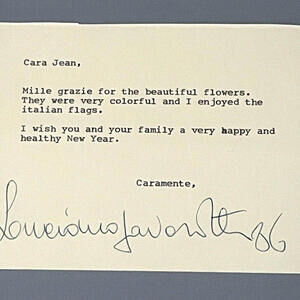 Cara Jean,
Mille grazie for the beautiful flowers.
They were very colorful and I enjoyed the
italian flags.
I wish you and your family a very happy and
healthy New Year.
Caramente,
Luciano Pavarotti 86